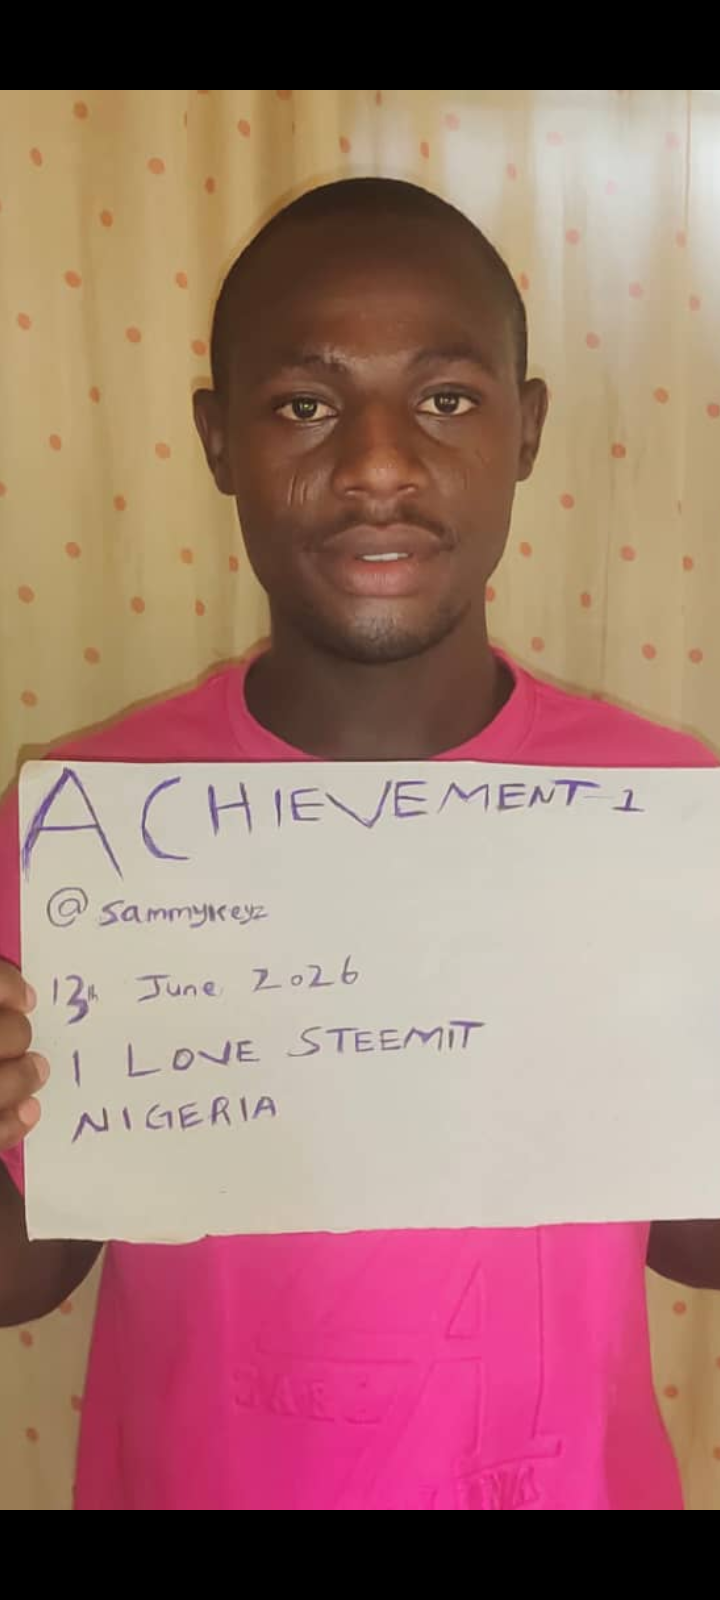 ACHIEVEMENT-1
@sammykeyz
13th June 2026
I LOVE STEEMIT
NIGERIA